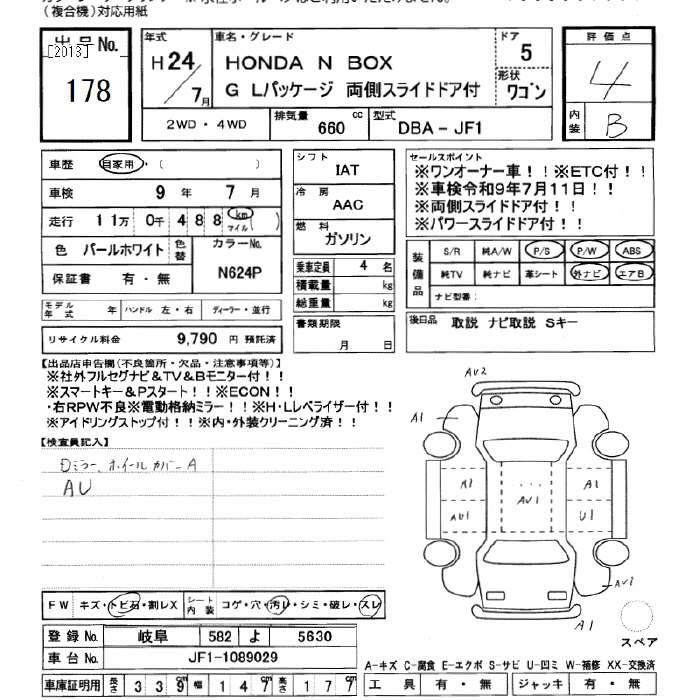 (複合機)対応用紙
出品No.
[2013]
178
年式
H24/7月
車名・グレード
HONDA N BOX
G Lパッケージ 両側スライドドア付
ドア
5
形状
ワゴン
評価点
4
内装
B
2WD・4WD
排気量 660 cc
型式 DBA-JF1
車歴 自家用・( )
車検 9 年 7 月
走行 11万 0千 488 km マイル ( )
色 パールホワイト 色替
カラーNo. N624P
保証書 有・無
モデル年式 年 ハンドル 左・右 ディーラー・並行
リサイクル料金 9,790 円 預託済
シフト IAT
冷房 AAC
燃料 ガソリン
乗車定員 4 名
積載量 kg
総重量 kg
書類期限
月 日
セールスポイント
※ワンオーナー車!!※ETC付!!
※車検令和9年7月11日!!
※両側スライドドア付!!
※パワースライドドア付!!
装備品
S/R 純A/W P/S P/W ABS
純TV 純ナビ 革シート 外ナビ エアB
ナビ型番:
後日品 取説 ナビ取説 Sキー
【出品店申告欄(不良箇所・欠品・注意事項等)】
※社外フルセグナビ&TV&Bモニター付!!
※スマートキー&Pスタート!!※ECON!!
・右RPW不良※電動格納ミラー!!※H・Lレベライザー付!!
※アイドリングストップ付!!※内・外装クリーニング済!!
【検査員記入】
Dミラー、ホイールカバーA
AU
AU2
A1
A1
A1
AU1
AU1
U1
AU1
A1
スペア
FW キズ・トビ石・割レX
シート内装 コゲ・穴・汚レ・シミ・破レ・スレ
登録No. 岐阜 582 よ 5630
車台No. JF1-1089029
車庫証明用 長さ 339cm 幅 147cm 高さ 177cm
A-キズ C-腐食 E-エクボ S-サビ U-凹ミ W-補修 XX-交換済
工具 有・無 ジャッキ 有・無